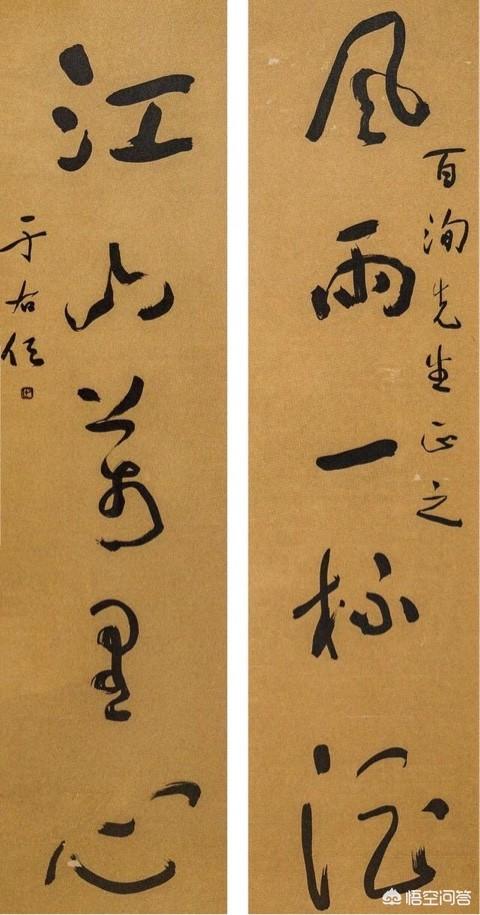 百洵先生正之
风雨一杯酒
江山万里心
于右任
悟空问答